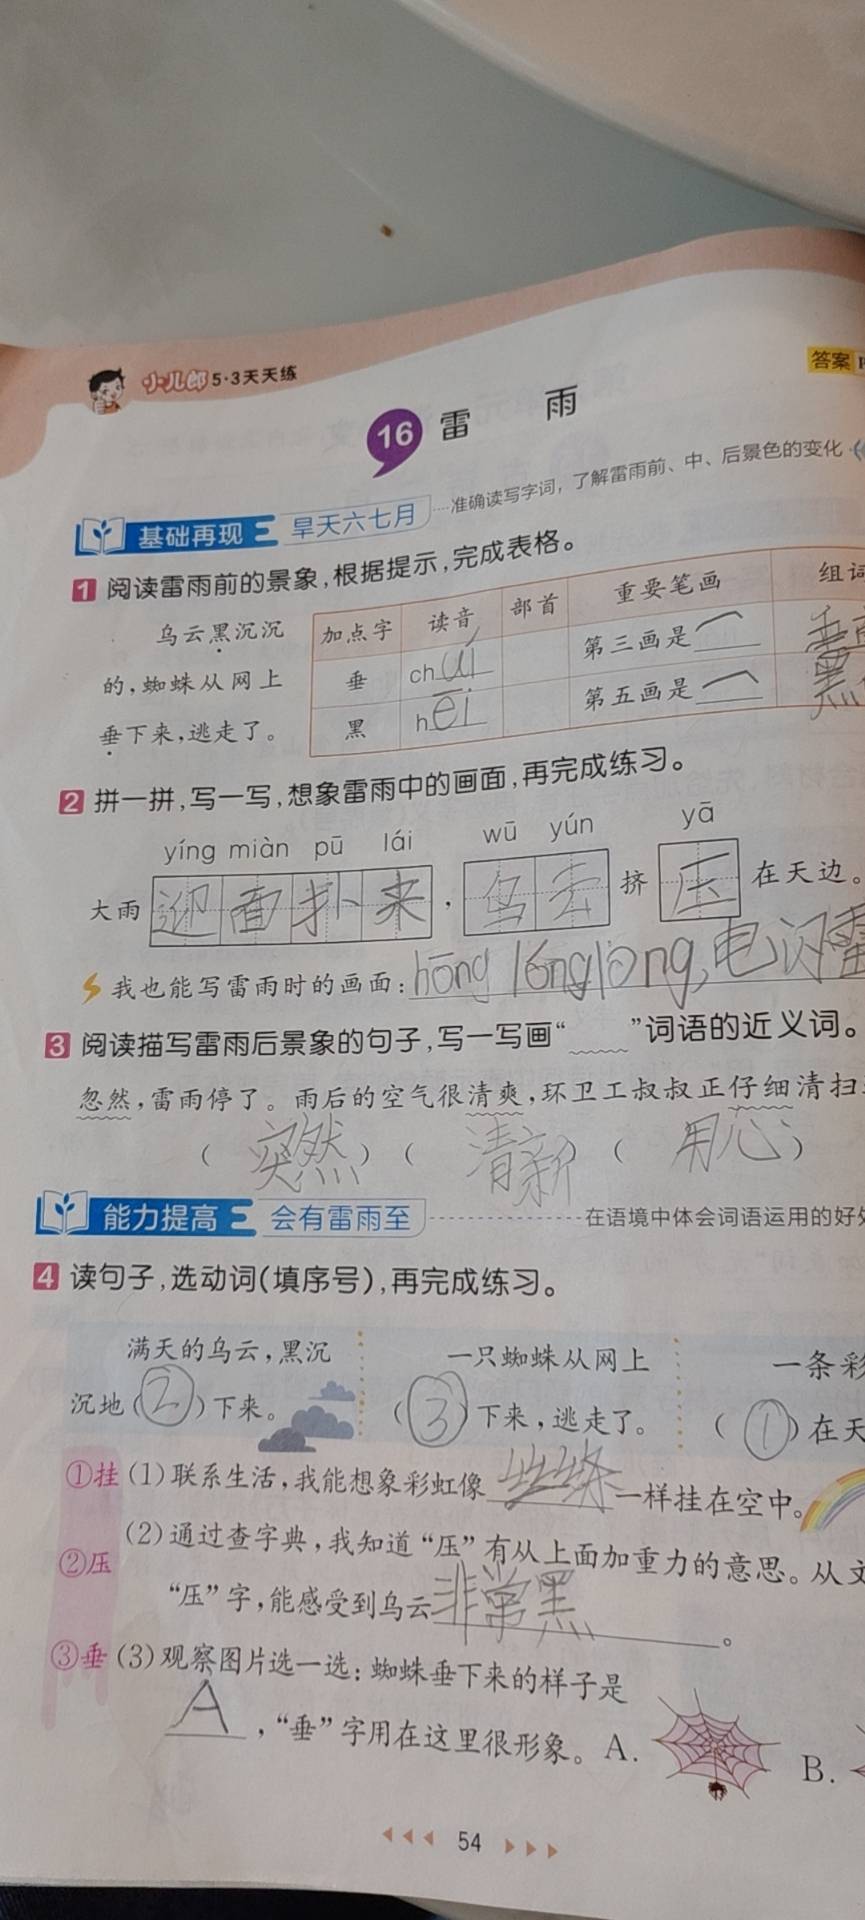 小儿郎 5·3天天练
答案
16 雷 雨
准确读写字词，了解雷雨前、中、后景色的变化
基础再现 旱天六七月
1 阅读雷雨前的景象，根据提示，完成表格。
乌云黑沉沉
的，蜘蛛从网上
垂下来，逃走了。
加点字 读音 部首 重要笔画 组词
垂 chuí 第三画是 一
黑 hēi 第五画是 一 黑
2 拼一拼，写一写，想象雷雨中的画面，再完成练习。
yíng miàn pū lái wū yún yā
大雨 迎面扑来，乌云 挤 压 在天边。
我也能写雷雨时的画面：hōng lónglóng，电闪雷
3 阅读描写雷雨后景象的句子，写一写画“ ”词语的近义词。
忽然，雷雨停了。雨后的空气很清爽，环卫工叔叔正仔细清扫
（突然）（清新）（用心）
能力提高 会有雷雨至
在语境中体会词语运用的好处
4 读句子，选动词(填序号)，再完成练习。
满天的乌云，黑沉
沉地(②)下来。
一只蜘蛛从网上
(③)下来，逃走了。
一条彩
(①)在天
①挂
②压
③垂
(1)联系生活，我能想象彩虹像 丝绦 一样挂在空中。
(2)通过查字典，我知道“压”有从上面加重力的意思。从文
“压”字，能感受到乌云 非常黑 。
(3)观察图片选一选：蜘蛛垂下来的样子是
A ，“垂”字用在这里很形象。A. B.
54